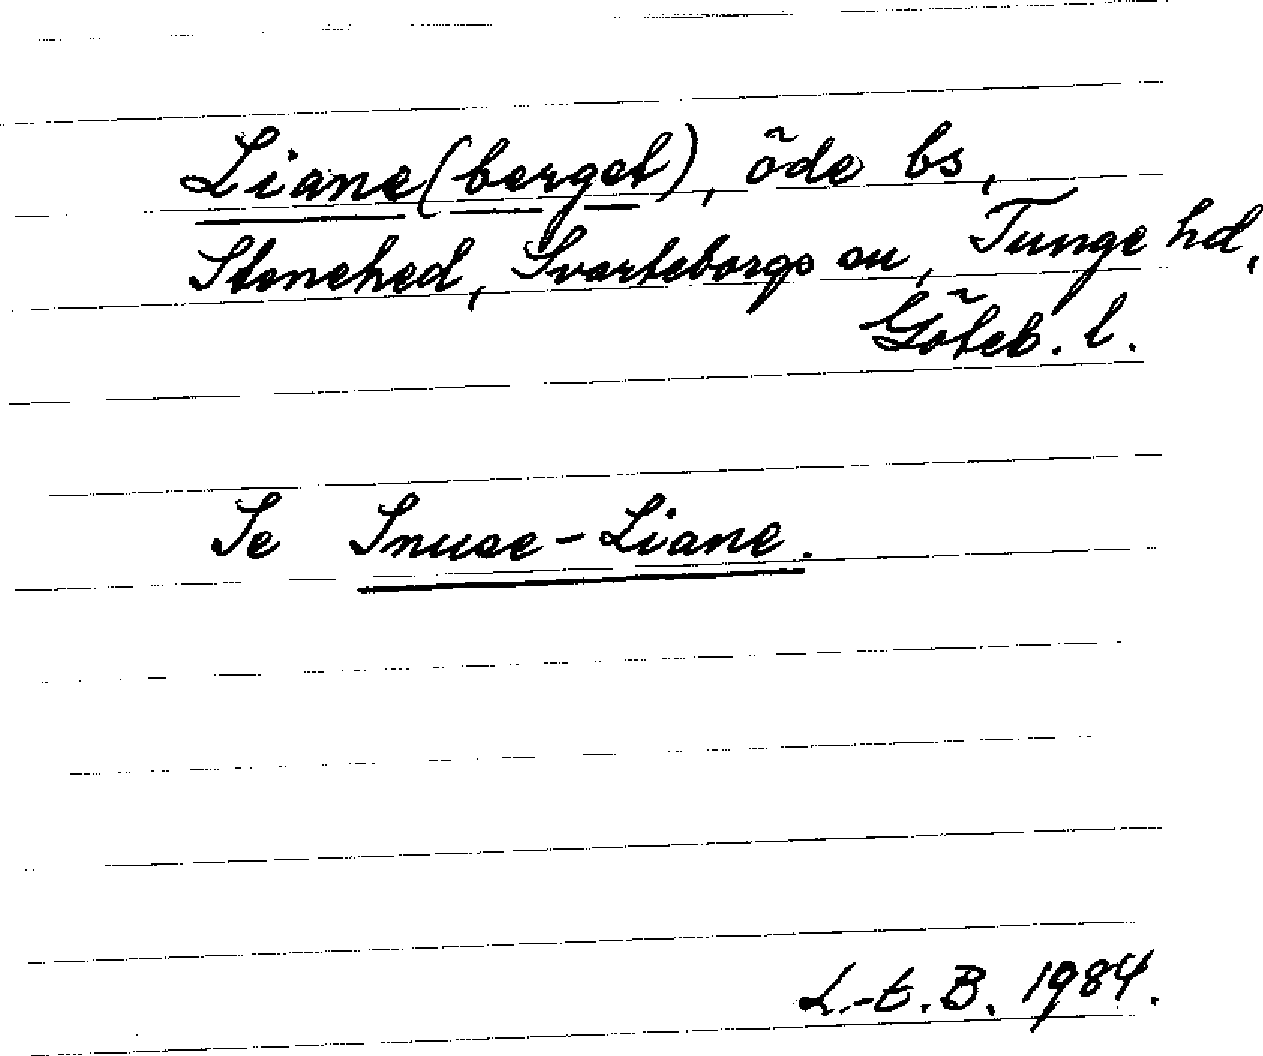 Liane(berget), öde bs,
Stenehed, Svarteborgs sn, Tunge hd,
Göteb. l.
Se Snuse-Liane.
L.-E. B. 1984.